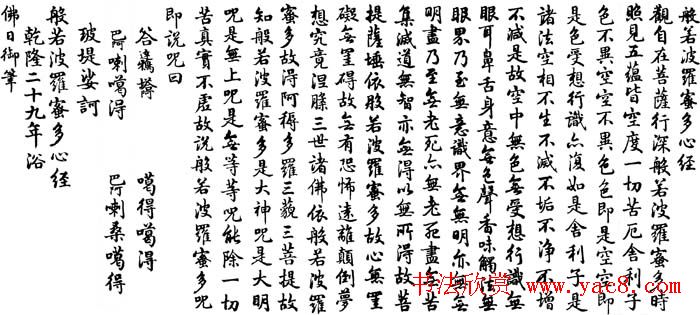 般若波羅蜜多心經
觀自在菩薩行深般若波羅蜜多時
照見五蘊皆空度一切苦厄舍利子
色不異空空不異色色即是空空即
是色受想行識亦復如是舍利子是
諸法空相不生不滅不垢不净不增
不減是故空中無色無受想行識無
眼耳鼻舌身意無色聲香味觸法無
眼界乃至無意識界無無明亦無無
明盡乃至無老死亦無老死盡無苦
集滅道無智亦無得以無所得故菩
提薩埵依般若波羅蜜多故心無罣
礙無罣礙故無有恐怖遠離顛倒夢
想究竟涅槃三世諸佛依般若波羅
蜜多故得阿耨多羅三藐三菩提故
知般若波羅蜜多是大神咒是大明
咒是無上咒是無等等咒能除一切
苦真實不虛故說般若波羅蜜多咒
即說咒曰
噶得噶得
喇噶得 喇桑噶得
玻堤娑訶
般若波羅蜜多心經
乾隆二十九年浴
佛日御筆
书法欣赏
www.yac8.com